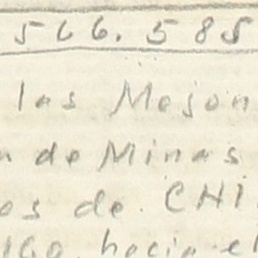 566.585
las Mejon
de Minas
os de CHI
hacia el